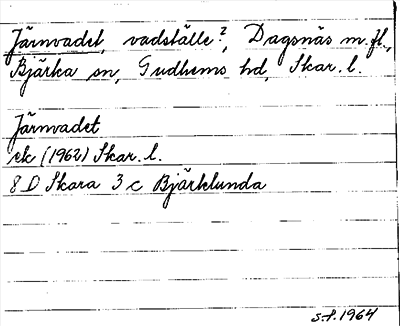 Järnvadet, vadställe?, Dagsnäs m.fl.,
Bjärka sn, Gudhems hd, Skar. l.
Järnvadet
ek (1962) Skar. l.
8 D Skara 3 c Bjärklunda
S.f. 1964